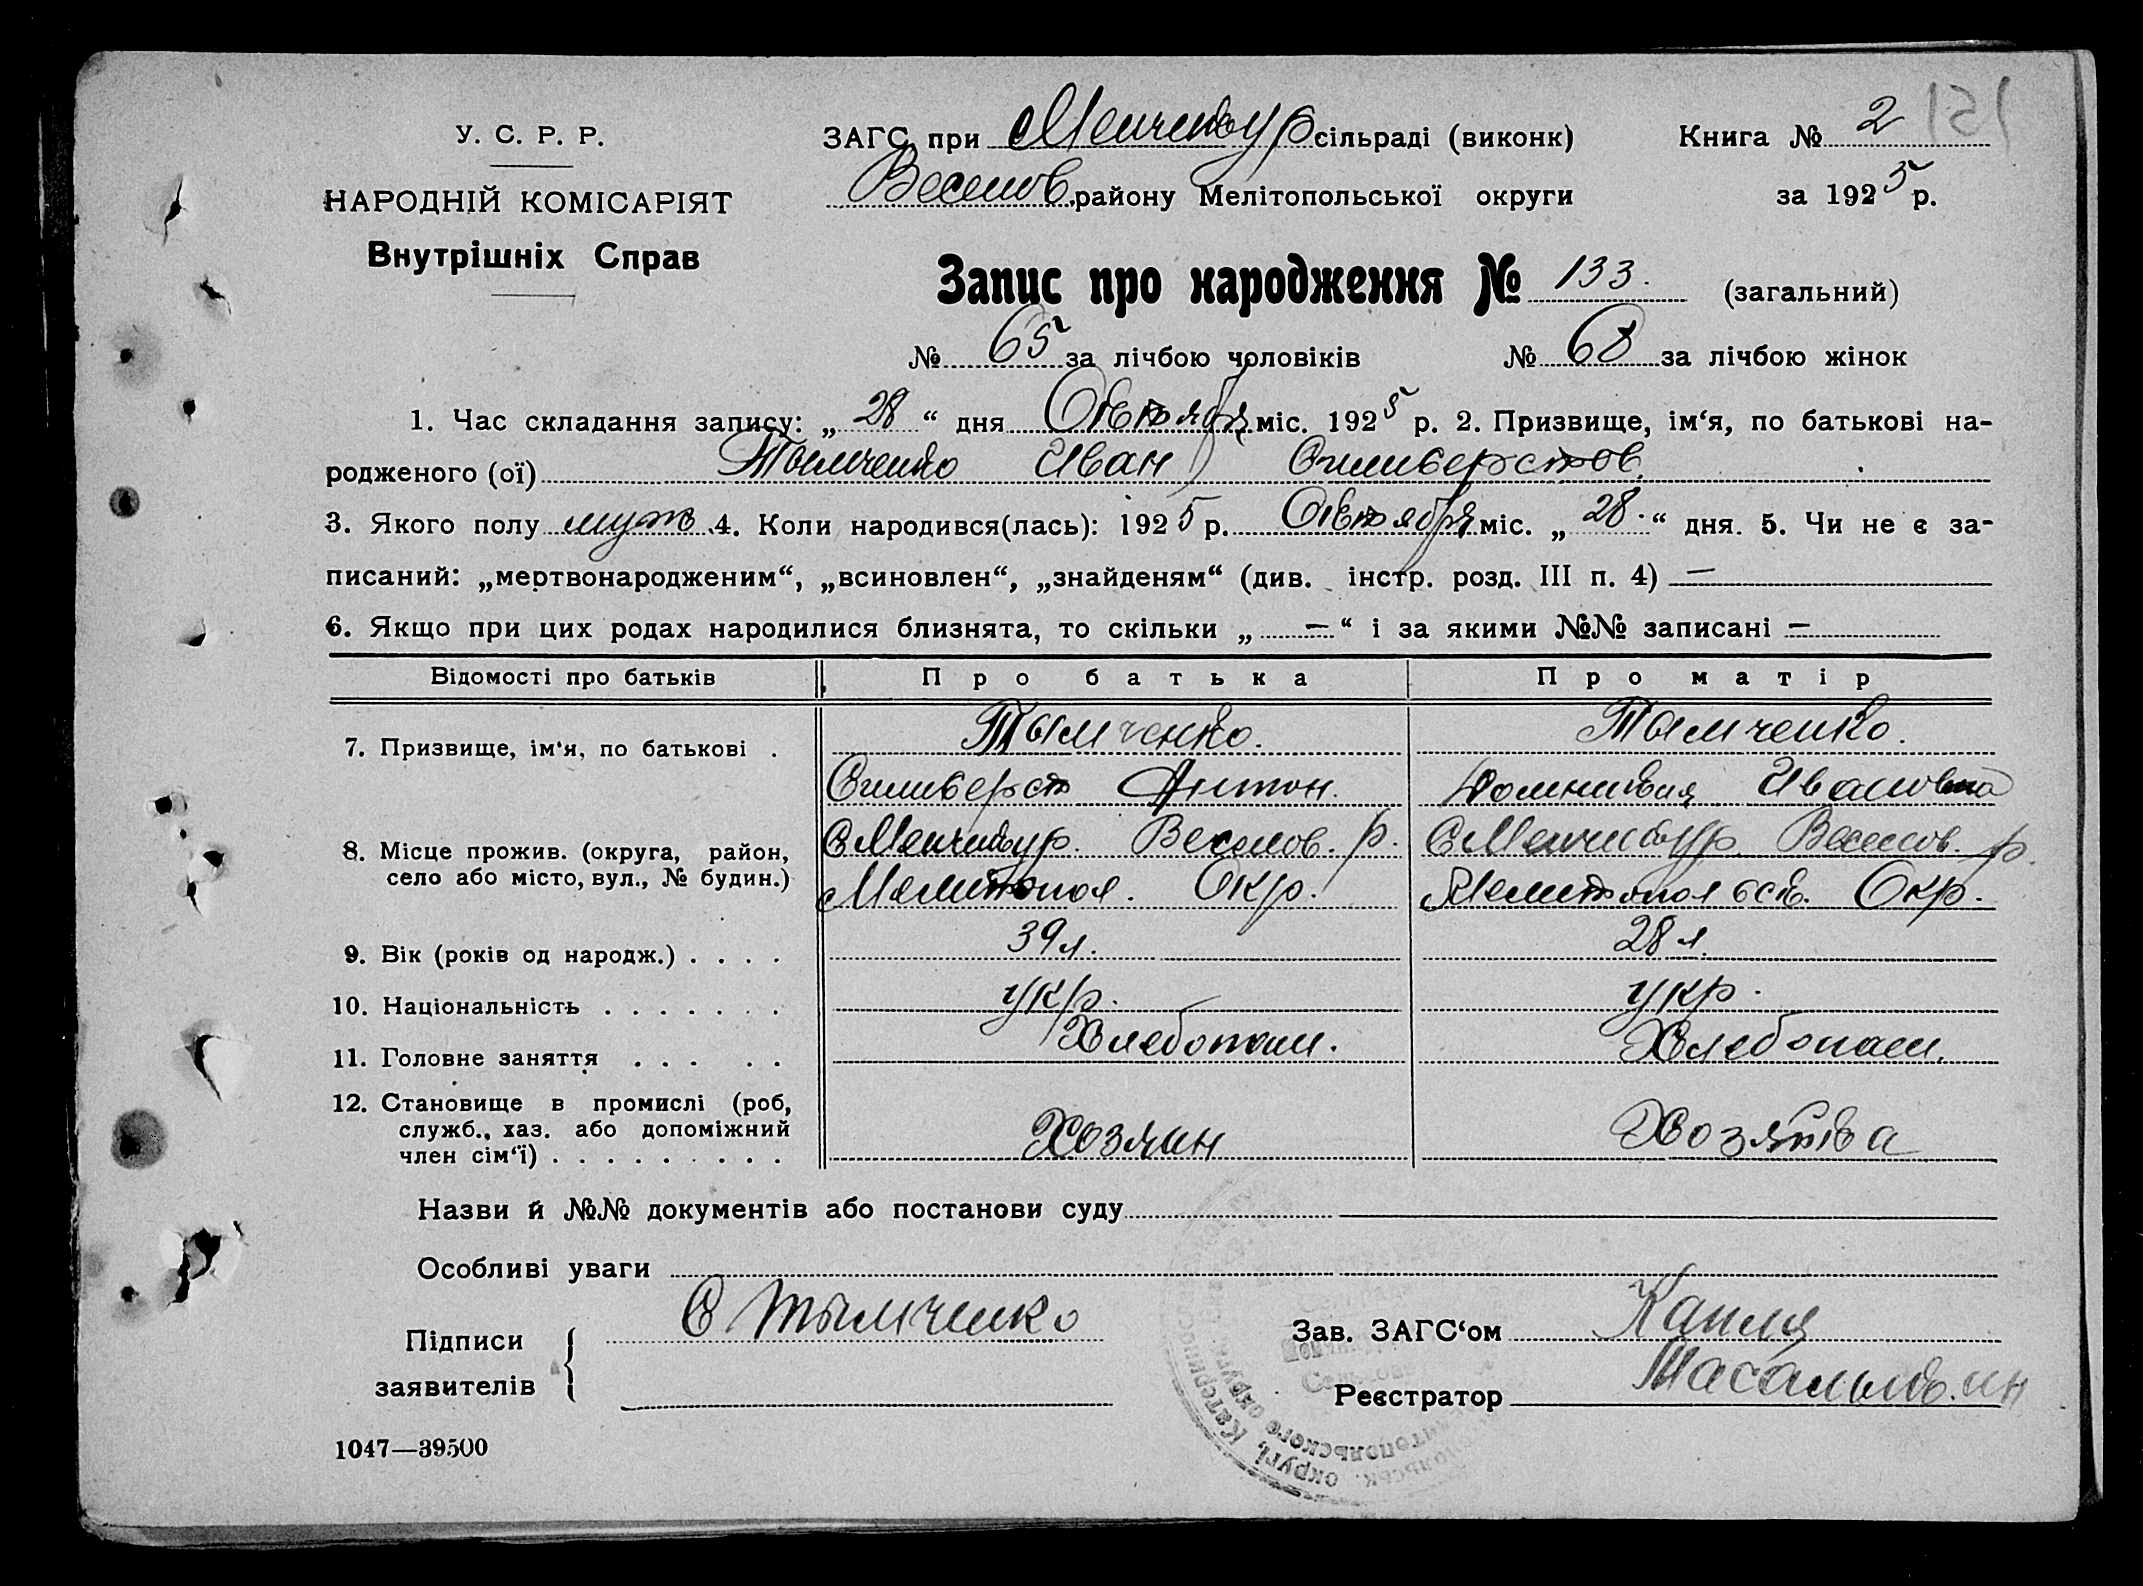 У. С. Р. Р.
НАРОДНІЙ КОМІСАРІЯТ
Внутрішніх Справ
ЗАГС при Менчикур сільраді (виконк)
Веселов. району Мелітопольської округи
Книга № 2
151
за 1925 р.
Запис про народження № 133. (загальний)
№ 65 за лічбою чоловіків № 68 за лічбою жінок
1. Час складання запису: „28“ дня Октября міс. 1925 р. 2. Призвище, ім'я, по батькові на-
родженого (ої) Тымченко Иван Силиверстов
3. Якого полу муж. 4. Коли народився(лась): 1925 р. Октября міс. „28.“ дня. 5. Чи не є за-
писаний: „мертвонародженим“, „всиновлен“, „знайденям“ (див. інстр. розд. III п. 4) —
6. Якщо при цих родах народилися близнята, то скільки „—“ і за якими №№ записані —
Відомості про батьків Про батька Про матір
7. Призвище, ім'я, по батькові . Тымченко. Тымченко.
Силиверст Антон. Домникия Ивановна
8. Місце прожив. (округа, район, С Менчикур. Веселов. р. С Менчикур Веселов. р.
село або місто, вул., № будин.) Мелитопол. Окр. Мелитопольск. Окр.
9. Вік (років од народж.) . . . . 39 л. 28 л.
10. Національність . . . . . . . укр. укр.
11. Головне заняття . . . . . Хлебопаш. Хлебопаш.
12. Становище в промислі (роб,
служб., хаз. або допоміжний
член сім'ї) . . . . . . . . . Хозяин Хозяйка
Назви й №№ документів або постанови суду
Особливі уваги
Підписи
заявителів
С Тымченко
Зав. ЗАГС'ом Капля
Реєстратор
1047—39500